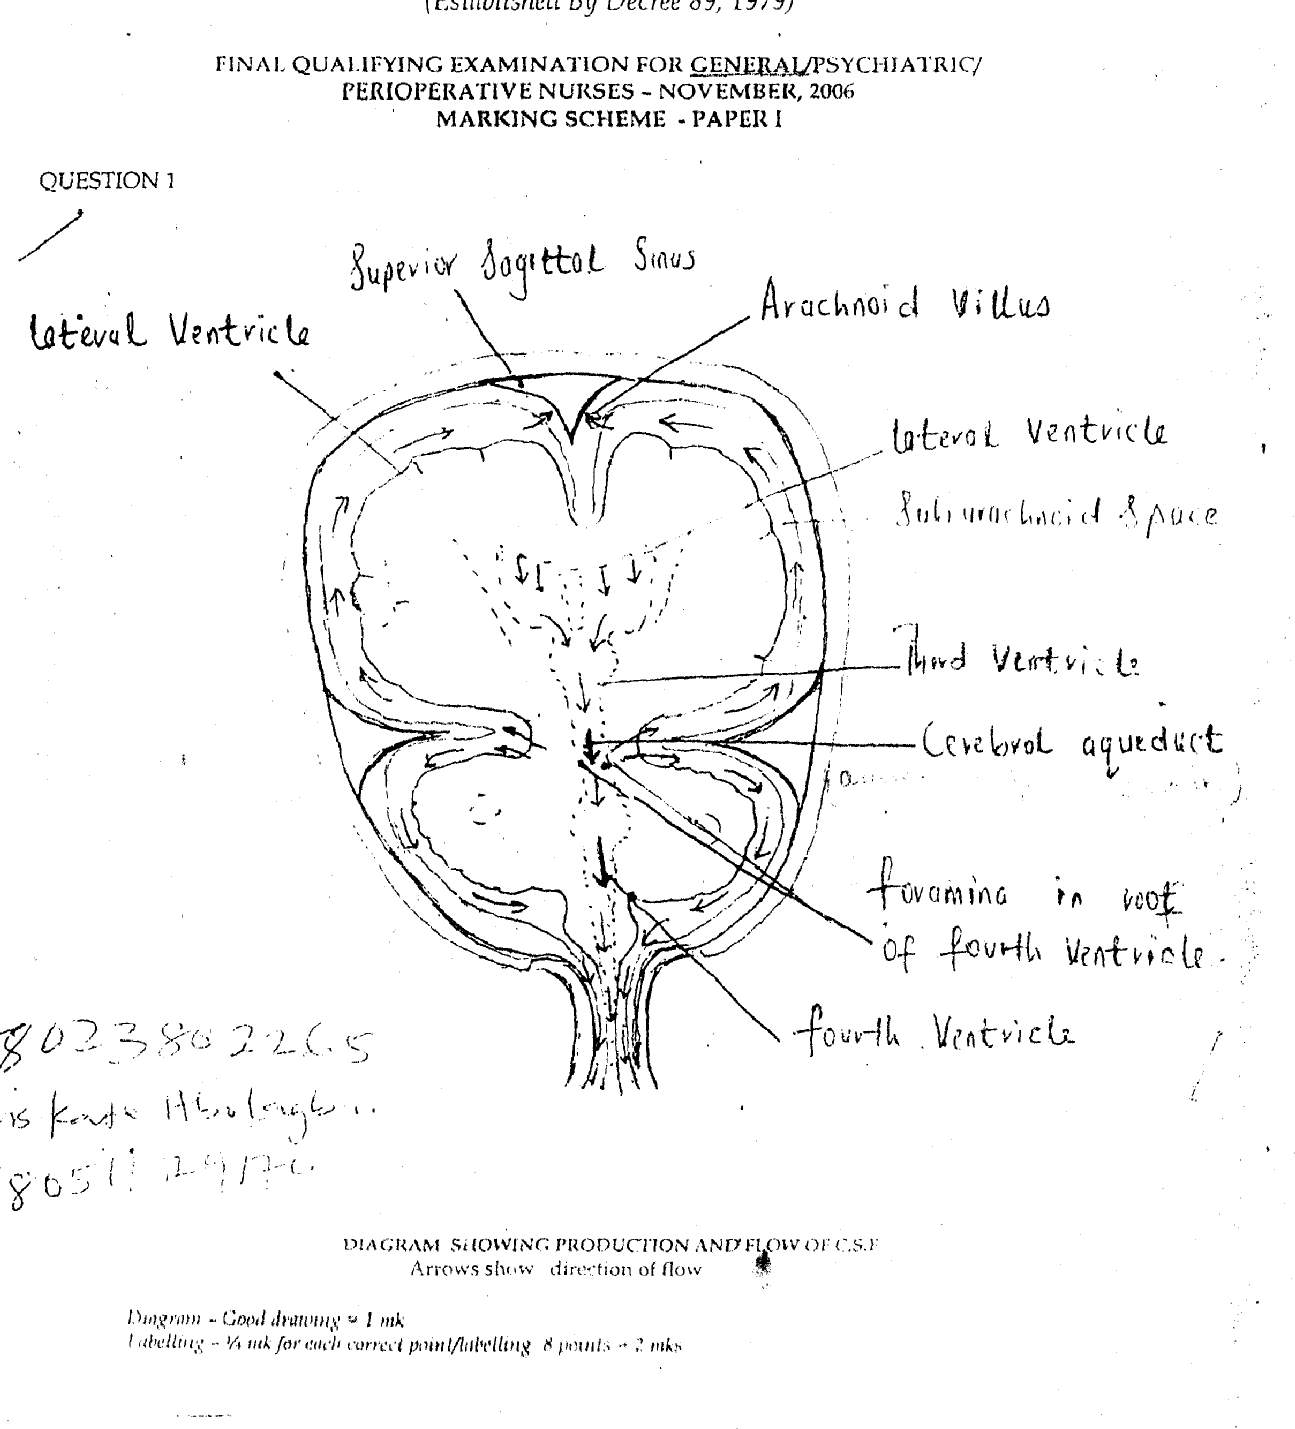 (Established By Decree 89, 1979)
FINAL QUALIFYING EXAMINATION FOR GENERAL/PSYCHIATRIC/
PERIOPERATIVE NURSES - NOVEMBER, 2006
MARKING SCHEME - PAPER I
QUESTION 1
Superior Sagittal Sinus
Arachnoid Villus
lateral Ventricle
lateral Ventricle
Subarachnoid Space
Third Ventricle
Cerebral aqueduct
foramina in roof
of fourth Ventricle.
fourth Ventricle
DIAGRAM SHOWING PRODUCTION AND FLOW OF C.S.F
Arrows show direction of flow
Diagram - Good drawing = 1 mk
Labelling - ¼ mk for each correct point/labelling 8 points = 2 mks